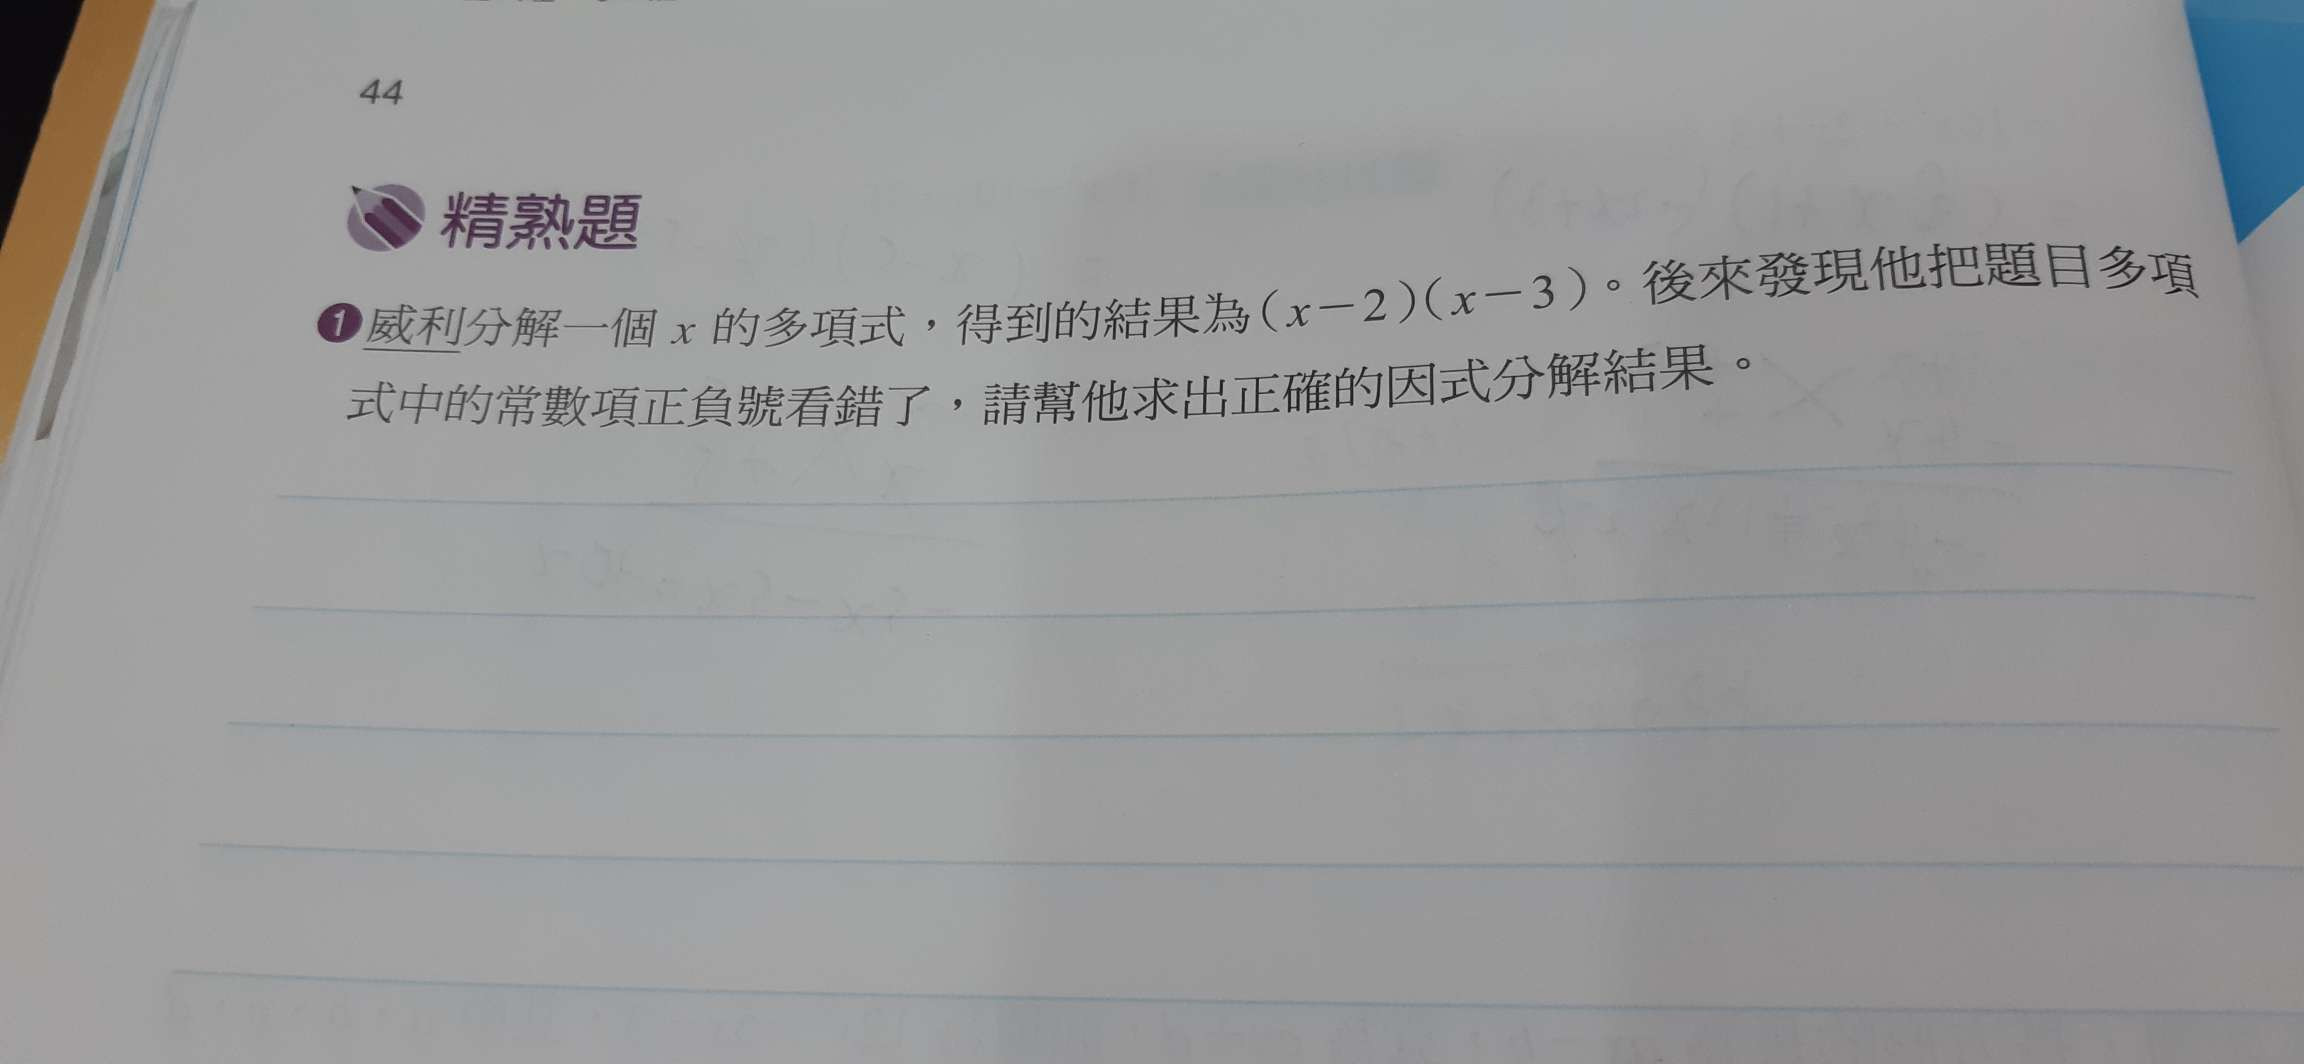 44
精熟題
❶威利分解一個 x 的多項式，得到的結果為(x－2)(x－3)。後來發現他把題目多項
式中的常數項正負號看錯了，請幫他求出正確的因式分解結果。